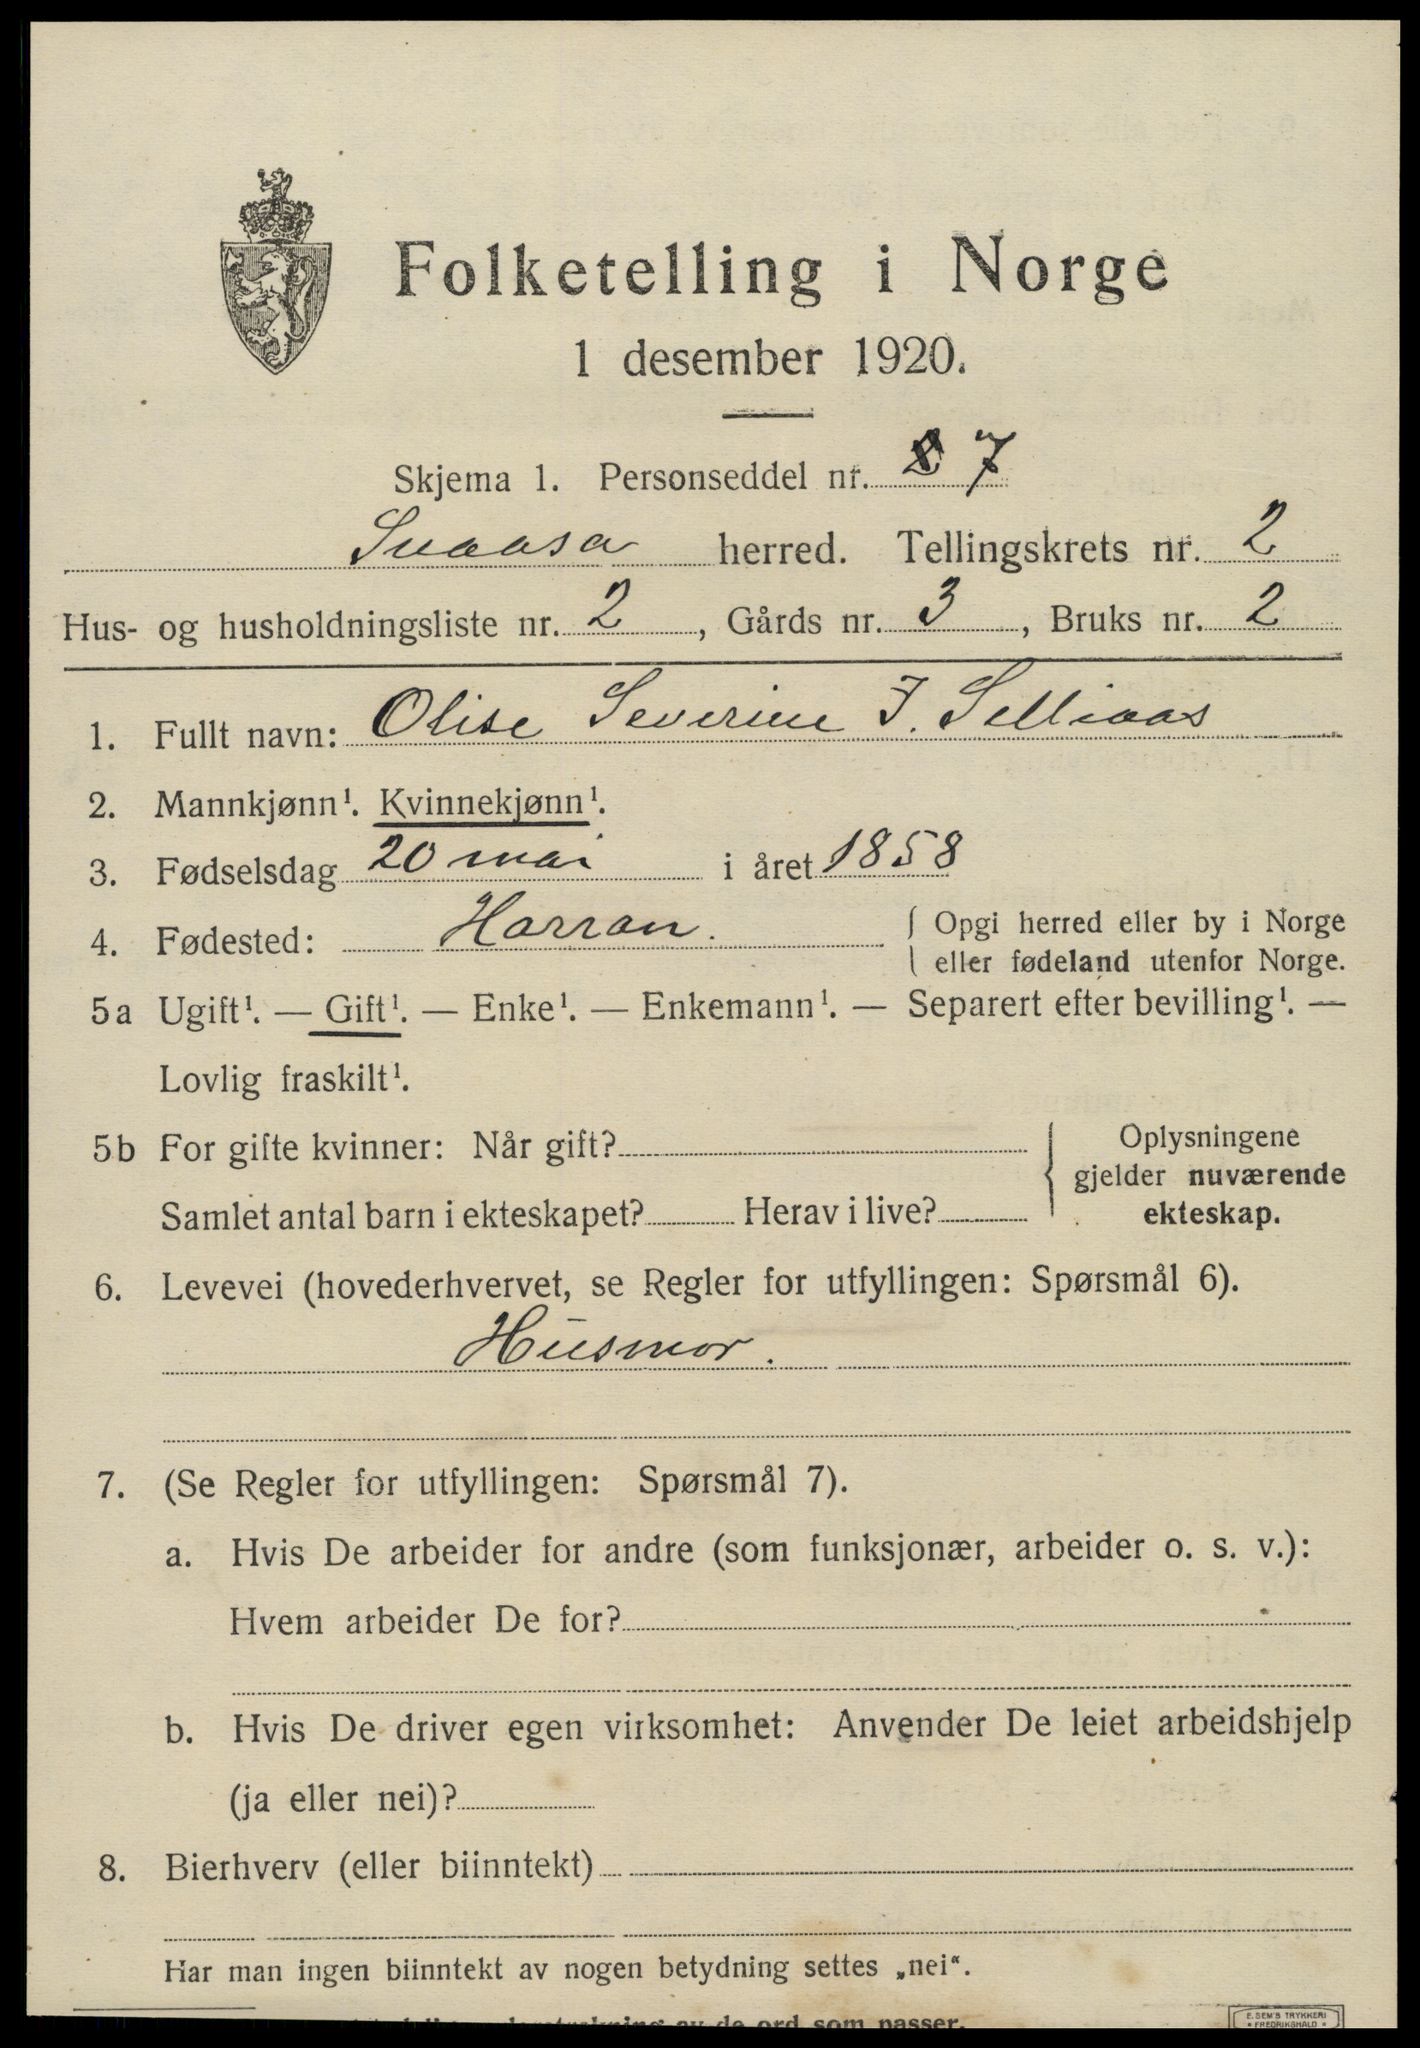 Folketelling i Norge
1 desember 1920.
Skjema 1. Personseddel nr. 7
Snaasa herred. Tellingskrets nr. 2
Hus- og husholdningsliste nr. 2, Gårds nr. 3, Bruks nr. 2
1. Fullt navn: Olise Severine J. Selliaas
2. Mannkjønn¹. Kvinnekjønn¹.
3. Fødselsdag 20 mai i året 1858
4. Fødested: Harran. { Opgi herred eller by i Norge
eller fødeland utenfor Norge.
5a Ugift¹. — Gift¹. — Enke¹. — Enkemann¹. — Separert efter bevilling¹. —
Lovlig fraskilt¹.
5b For gifte kvinner: Når gift?
Samlet antal barn i ekteskapet? Herav i live?
Oplysningene
gjelder nuværende
ekteskap.
6. Levevei (hovederhvervet, se Regler for utfyllingen: Spørsmål 6).
Husmor.
7. (Se Regler for utfyllingen: Spørsmål 7).
a. Hvis De arbeider for andre (som funksjonær, arbeider o. s. v.):
Hvem arbeider De for?
b. Hvis De driver egen virksomhet: Anvender De leiet arbeidshjelp
(ja eller nei)?
8. Bierhverv (eller biinntekt)
Har man ingen biinntekt av nogen betydning settes „nei“.
av de ord som passer.
E. SEM'S TRYKKERI
• FREDRIKSHALD •